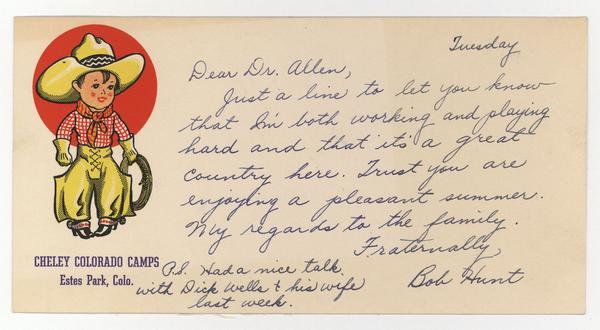 Tuesday
Dear Dr. Allen,
Just a line to let you know
that I'm both working and playing
hard and that it's a great
country here. Trust you are
enjoying a pleasant summer.
My regards to the family.
Fraternally
Bob Hunt
P.S. Had a nice talk
with Dick Wells & his wife
last week.
CHELEY COLORADO CAMPS
Estes Park, Colo.